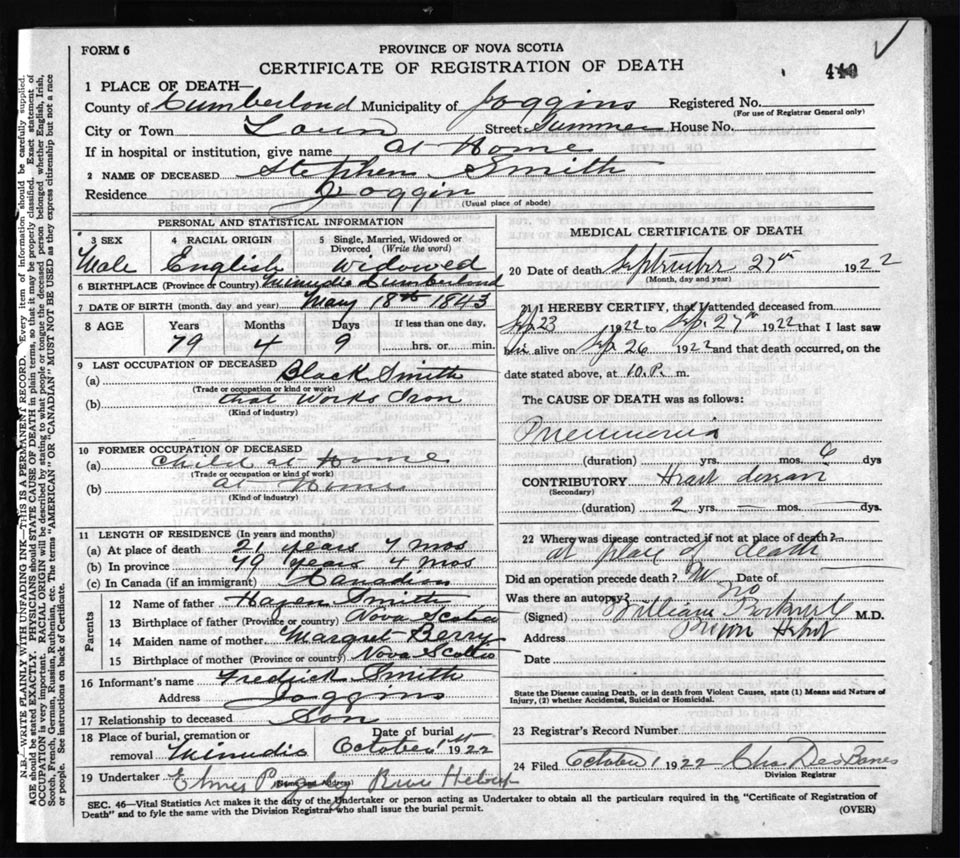 FORM 6
PROVINCE OF NOVA SCOTIA
CERTIFICATE OF REGISTRATION OF DEATH
440
1 PLACE OF DEATH—
County of Cumberland Municipality of Joggins Registered No.
(For use of Registrar General only)
City or Town Town Street Summer House No.
If in hospital or institution, give name at Home
2 NAME OF DECEASED Stephen Smith
Residence Joggin
(Usual place of abode)
PERSONAL AND STATISTICAL INFORMATION
3 SEX 4 RACIAL ORIGIN 5 Single, Married, Widowed or Divorced (Write the word)
Male English Widowed
6 BIRTHPLACE (Province or Country) Minudie Cumberland
7 DATE OF BIRTH (month, day and year) May 18th 1843
8 AGE Years Months Days If less than one day,
79 4 9 hrs. or min.
9 LAST OCCUPATION OF DECEASED
(a) Black Smith
(Trade or occupation or kind or work)
(b) that Works Iron
(Kind of industry)
10 FORMER OCCUPATION OF DECEASED
(a) Child at Home
(Trade or occupation or kind of work)
(b) at Home
(Kind of industry)
11 LENGTH OF RESIDENCE (In years and months)
(a) At place of death 21 years 7 mos
(b) In province 79 years 4 mos
(c) In Canada (if an immigrant) Canadian
Parents
12 Name of father Hazen Smith
13 Birthplace of father (Province or country) Nova Scotia
14 Maiden name of mother Margret Berry
15 Birthplace of mother (Province or country) Nova Scotia
16 Informant's name Fredrick Smith
Address Joggins
17 Relationship to deceased Son
18 Place of burial, cremation or removal Minudie Date of burial October 1st 1922
19 Undertaker Elmer River Hebert
MEDICAL CERTIFICATE OF DEATH
20 Date of death September 27th 1922
(Month, day and year)
21 I HEREBY CERTIFY, that I attended deceased from
Sep 23 1922 to Sep. 27th 1922 that I last saw
him alive on Sep 26 1922 and that death occurred, on the
date stated above, at 10. P. m.
The CAUSE OF DEATH was as follows:
Pneumonia
(duration) yrs. mos. 6 dys
CONTRIBUTORY Heart
(Secondary)
(duration) 2 yrs. — mos. dys.
22 Where was disease contracted if not at place of death?
at place of death
Did an operation precede death? No Date of
Was there an autopsy? No
(Signed) William M.D.
Address River Hebert
Date
State the Disease causing Death, or in death from Violent Causes, state (1) Means and Nature of Injury, (2) whether Accidental, Suicidal or Homicidal.
23 Registrar's Record Number
24 Filed October 1 1922 Chas DesBarres
Division Registrar
SEC. 46—Vital Statistics Act makes it the duty of the Undertaker or person acting as Undertaker to obtain all the particulars required in the "Certificate of Registration of
Death" and to fyle the same with the Division Registrar who shall issue the burial permit.
(OVER)
N.B.—WRITE PLAINLY WITH UNFADING INK—THIS IS A PERMANENT RECORD. Every item of information should be carefully supplied.
AGE should be stated EXACTLY. PHYSICIANS should STATE CAUSE OF DEATH in plain terms, so that it may be properly classified. Exact statement of
OCCUPATION is very important. RACIAL ORIGIN will be described by stating to what people or tongue the deceased person belonged whether English, Irish,
Scotch, French, German, Russian, Ruthenian, etc. The terms "AMERICAN" OR "CANADIAN" MUST NOT BE USED as they express citizenship but not a race
or people. See instructions on back of Certificate.